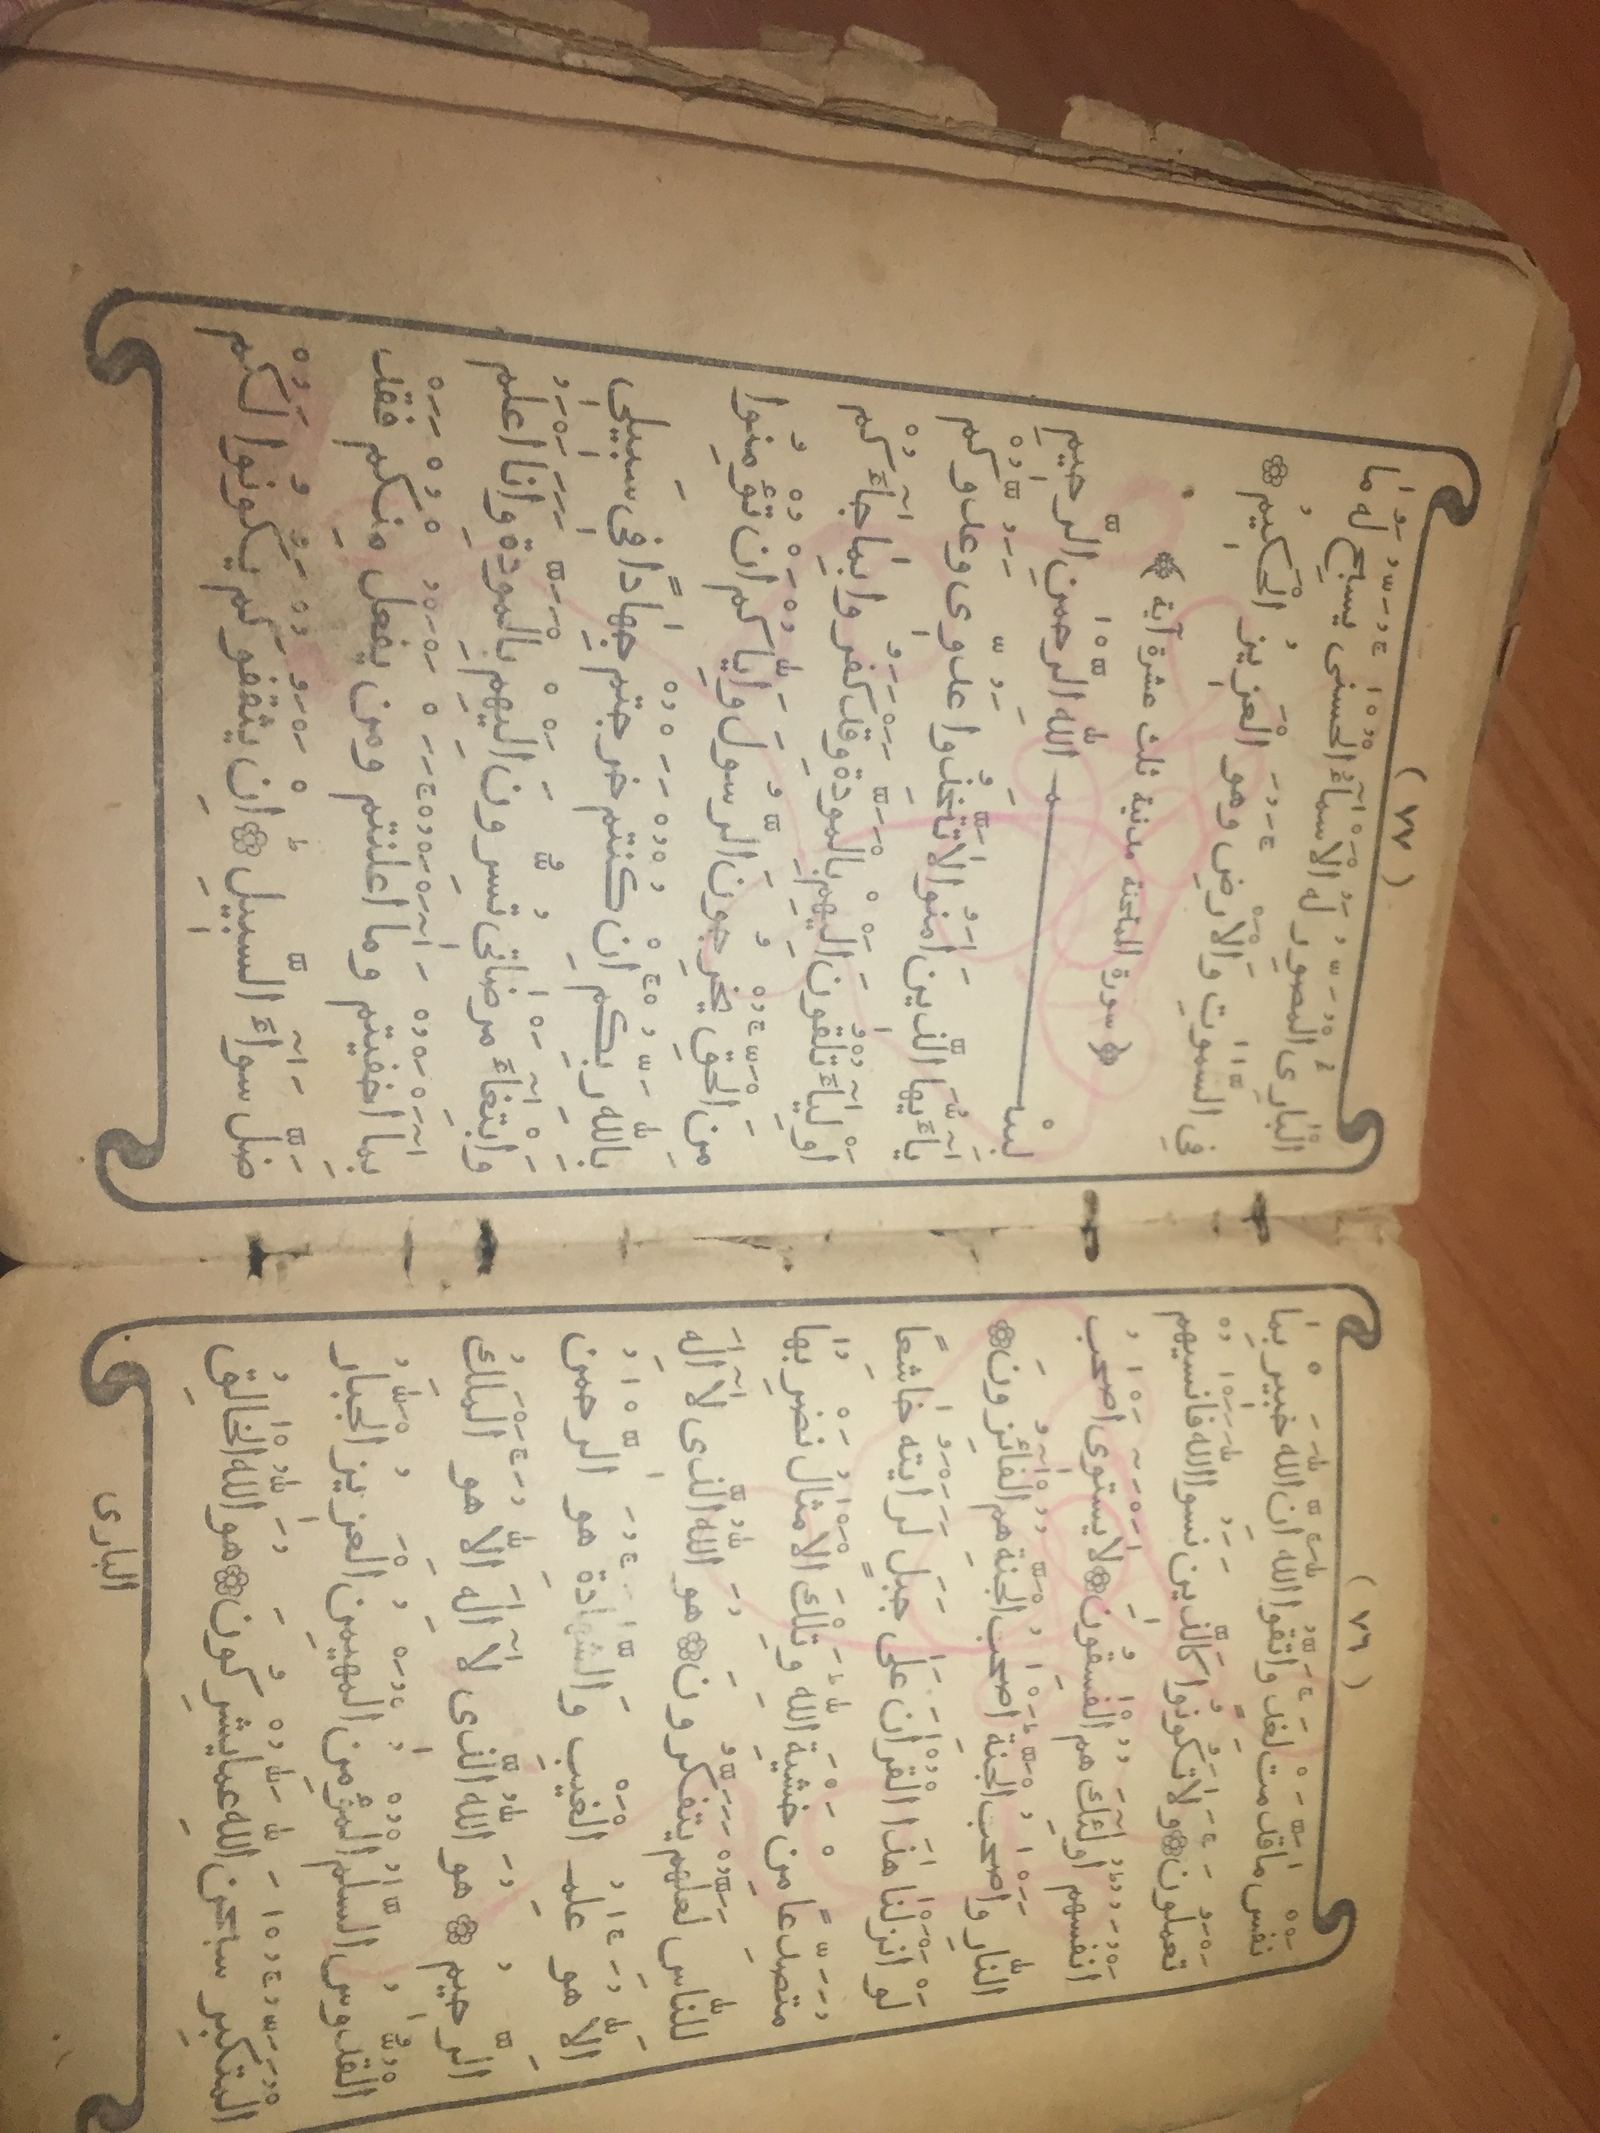 ( ٧٦ )
نَفْسٌ مَا قَدَّمَتْ لِغَدٍ وَاتَّقُوا اللّٰهَ اِنَّ اللّٰهَ خَبِيرٌ بِمَا
تَعْمَلُونَ ❁ وَلَا تَكُونُوا كَالَّذِينَ نَسُوا اللّٰهَ فَاَنْسٰيهُمْ
اَنْفُسَهُمْ اُولٰٓئِكَ هُمُ الْفٰسِقُونَ ❁ لَا يَسْتَوِٓى اَصْحٰبُ
النَّارِ وَاَصْحٰبُ الْجَنَّةِ اَصْحٰبُ الْجَنَّةِ هُمُ الْفَٓائِزُونَ ❁
لَوْ اَنْزَلْنَا هٰذَا الْقُرْاٰنَ عَلٰى جَبَلٍ لَرَاَيْتَهُ خَاشِعًا
مُتَصَدِّعًا مِنْ خَشْيَةِ اللّٰهِ وَتِلْكَ الْاَمْثَالُ نَضْرِبُهَا
لِلنَّاسِ لَعَلَّهُمْ يَتَفَكَّرُونَ ❁ هُوَ اللّٰهُ الَّذِى لَٓا اِلٰهَ
اِلَّا هُوَ عٰلِمُ الْغَيْبِ وَالشَّهَادَةِ هُوَ الرَّحْمٰنُ
الرَّحِيمُ ❁ هُوَ اللّٰهُ الَّذِى لَٓا اِلٰهَ اِلَّا هُوَ الْمَلِكُ
الْقُدُّوسُ السَّلٰمُ الْمُؤْمِنُ الْمُهَيْمِنُ الْعَزِيزُ الْجَبَّارُ
الْمُتَكَبِّرُ سُبْحٰنَ اللّٰهِ عَمَّا يُشْرِكُونَ ❁ هُوَ اللّٰهُ الْخَالِقُ
البارى
( ٧٧ )
الْبَارِئُ الْمُصَوِّرُ لَهُ الْاَسْمَٓاءُ الْحُسْنٰى يُسَبِّحُ لَهُ مَا
فِى السَّمٰوٰتِ وَالْاَرْضِ وَهُوَ الْعَزِيزُ الْحَكِيمُ ❁
سورة الممتحنة مدنية ثلث عشرة آية
بِسْمِ اللّٰهِ الرَّحْمٰنِ الرَّحِيمِ
يَٓا اَيُّهَا الَّذِينَ اٰمَنُوا لَا تَتَّخِذُوا عَدُوِّى وَعَدُوَّكُمْ
اَوْلِيَٓاءَ تُلْقُونَ اِلَيْهِمْ بِالْمَوَدَّةِ وَقَدْ كَفَرُوا بِمَا جَٓاءَكُمْ
مِنَ الْحَقِّ يُخْرِجُونَ الرَّسُولَ وَاِيَّاكُمْ اَنْ تُؤْمِنُوا
بِاللّٰهِ رَبِّكُمْ اِنْ كُنْتُمْ خَرَجْتُمْ جِهَادًا فِى سَبِيلِى
وَابْتِغَٓاءَ مَرْضَاتِى تُسِرُّونَ اِلَيْهِمْ بِالْمَوَدَّةِ وَاَنَا اَعْلَمُ
بِمَٓا اَخْفَيْتُمْ وَمَٓا اَعْلَنْتُمْ وَمَنْ يَفْعَلْهُ مِنْكُمْ فَقَدْ
ضَلَّ سَوَٓاءَ السَّبِيلِ ❁ اِنْ يَثْقَفُوكُمْ يَكُونُوا لَكُمْ